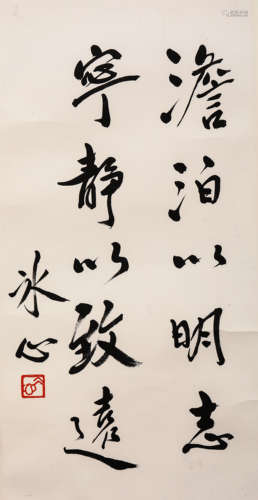 澹泊以明志
寧静以致遠
冰心